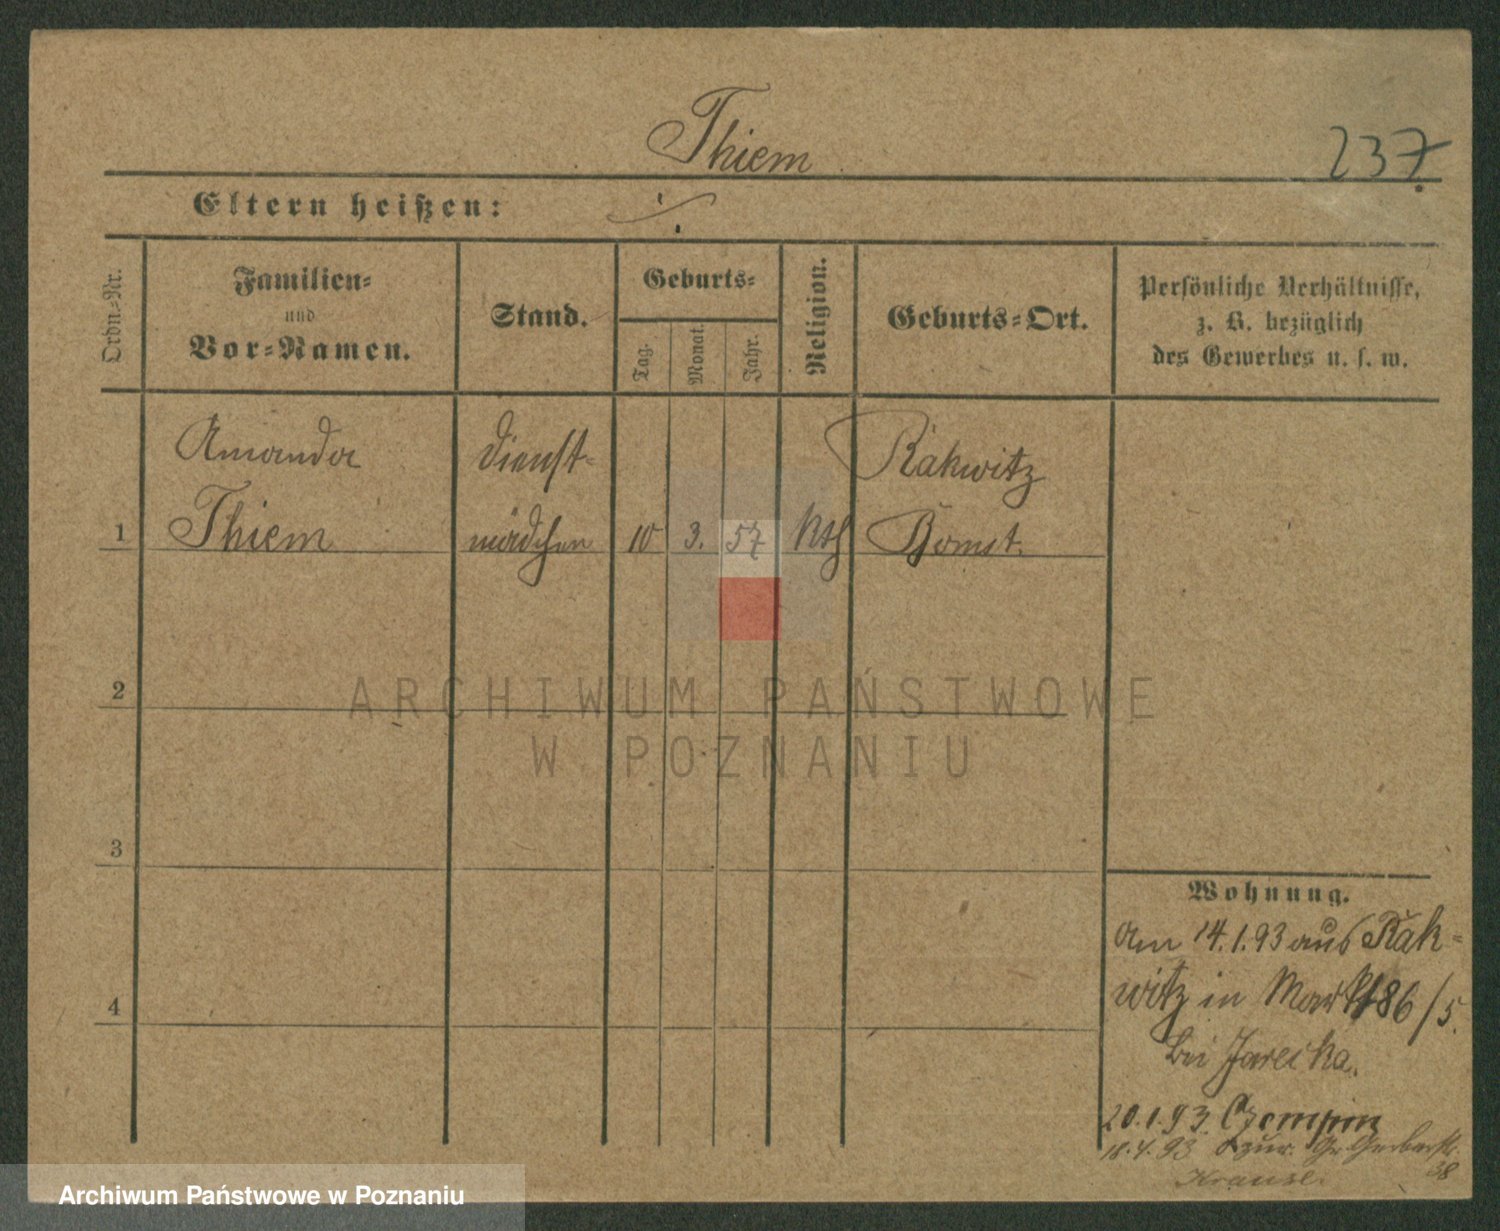 Thiem
237
Eltern heißen:
Ordn.-Nr.
Familien-
und
Vor-Namen.
Stand.
Geburts-
Tag.
Monat.
Jahr.
Religion.
Geburts-Ort.
Persönliche Verhältnisse,
z. B. bezüglich
des Gewerbes u. s. w.
1
Amanda
Thiem
Dienst-
mädchen
10
3.
57
Kth
Rakwitz
Bomst.
2
3
4
Wohnung.
Am 14.1.93 aus Rak-
witz in Markt 86/5.
bei Jarecka.
20.1.93. Czempin
18.4.93 zur. Gr. Gerberstr.
38
Krause.
ARCHIWUM PAŃSTWOWE
W POZNANIU
Archiwum Państwowe w Poznaniu